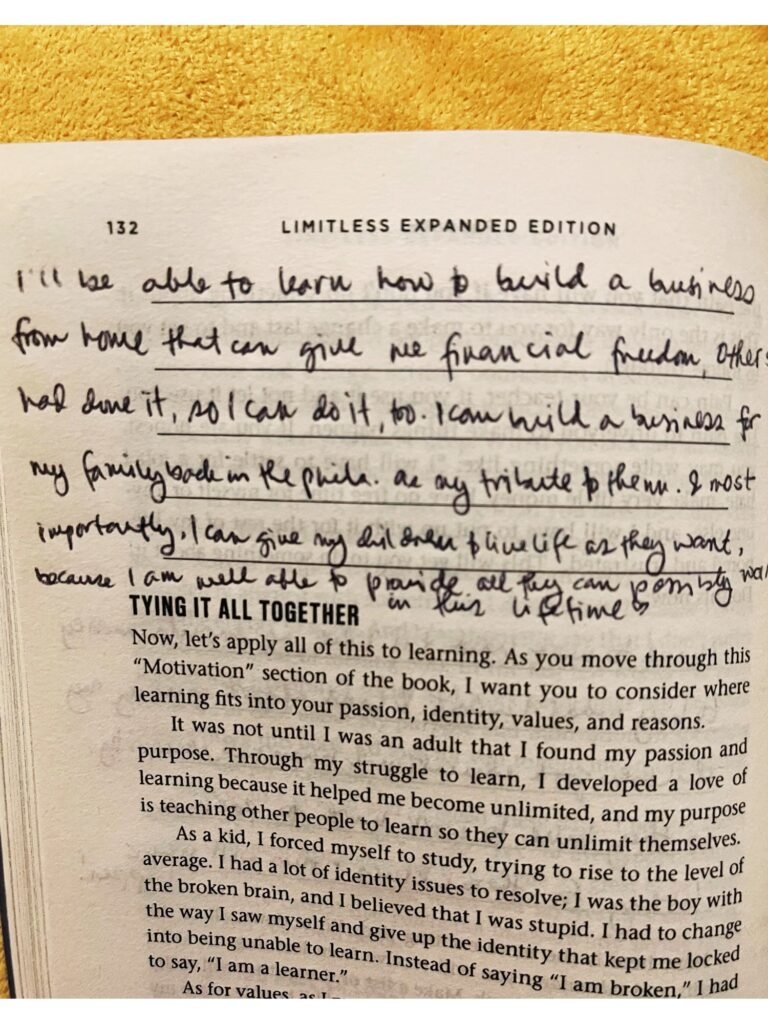 132 LIMITLESS EXPANDED EDITION
I'll be able to learn how to build a business
from home that can give me financial freedom, others
had done it, so I can do it, too. I can build a business for
my family back in the phils. as my tribute to them. & most
importantly, I can give my children to live life as they want,
because I am well able to provide all they can possibly wa
in this lifetime
TYING IT ALL TOGETHER
Now, let's apply all of this to learning. As you move through this
“Motivation” section of the book, I want you to consider where
learning fits into your passion, identity, values, and reasons.
It was not until I was an adult that I found my passion and
purpose. Through my struggle to learn, I developed a love of
learning because it helped me become unlimited, and my purpose
is teaching other people to learn so they can unlimit themselves.
As a kid, I forced myself to study, trying to rise to the level of
average. I had a lot of identity issues to resolve; I was the boy with
the broken brain, and I believed that I was stupid. I had to change
the way I saw myself and give up the identity that kept me locked
into being unable to learn. Instead of saying “I am broken,” I had
to say, “I am a learner.”
As for values, as I